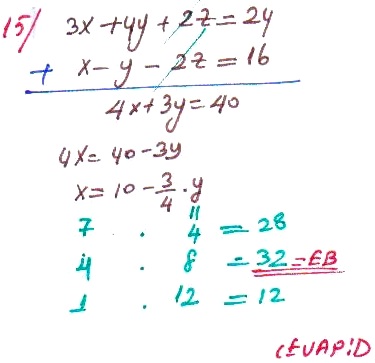 15/ 3x+4y+2z=24
+ x-y-2z=16
4x+3y=40
4x=40-3y
x=10-3/4·y
7 . 4 = 28
4 . 8 = 32=EB
1 . 12 = 12
CEVAP:D